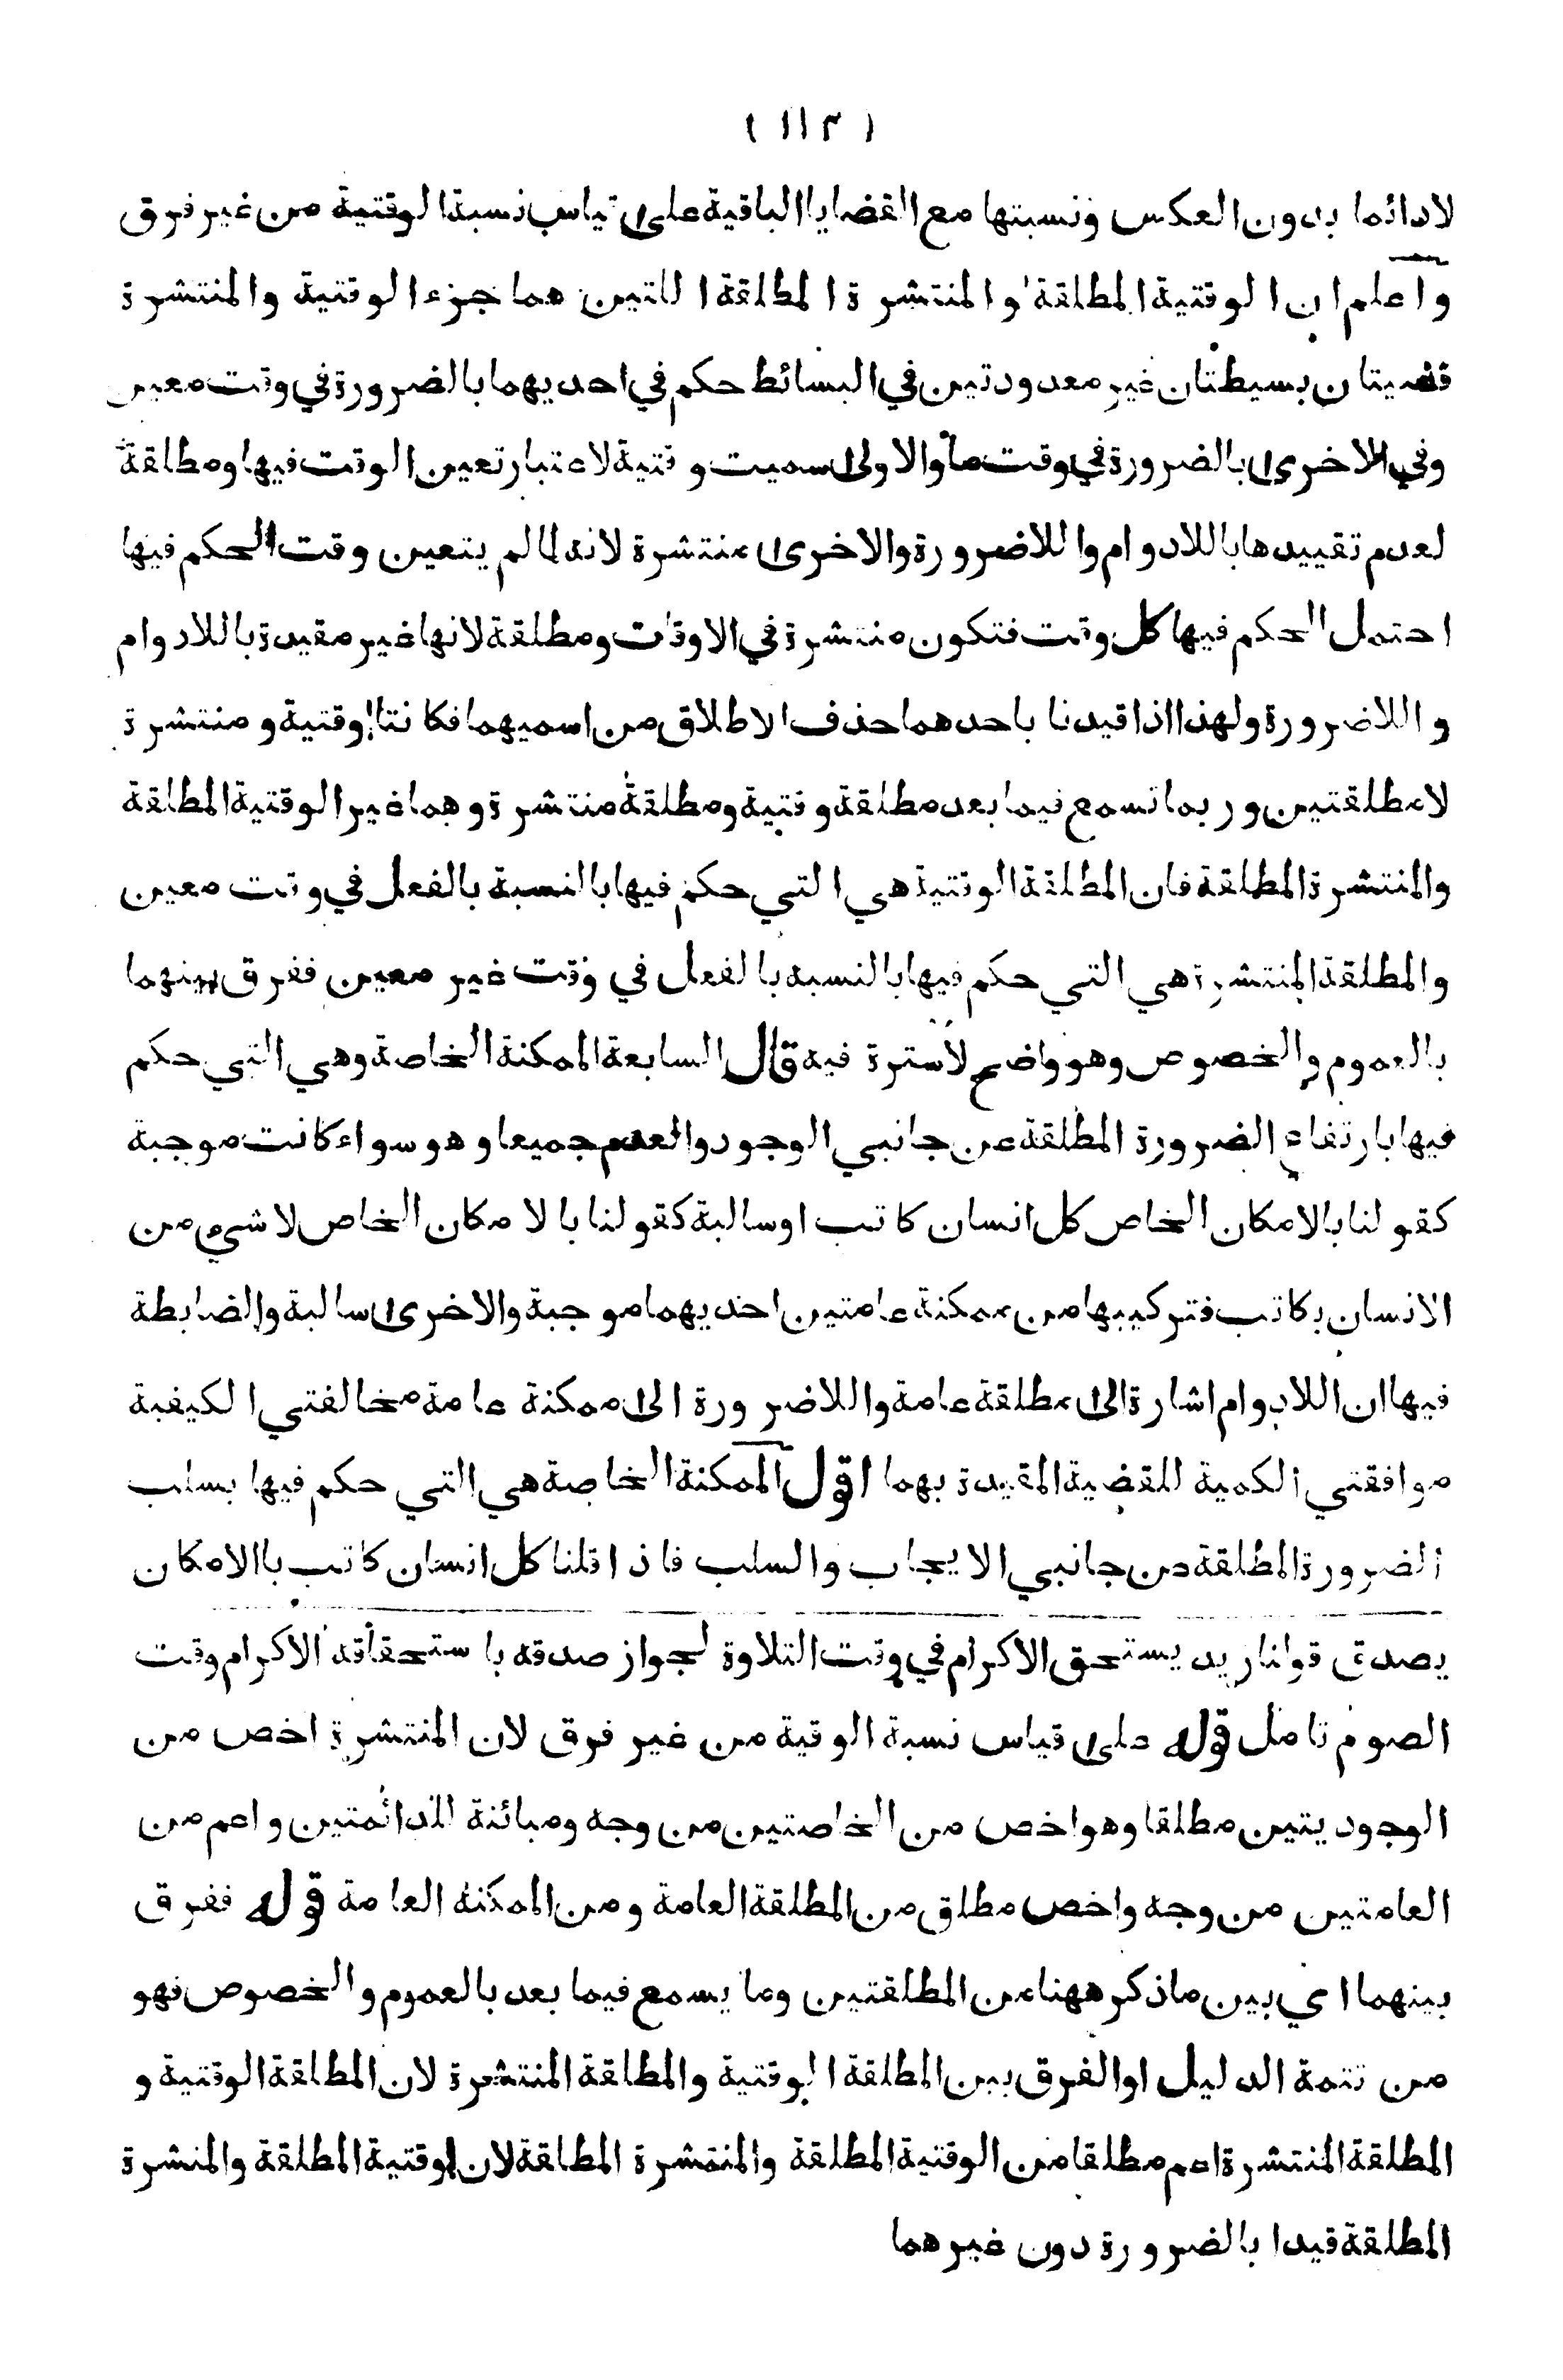 ( ١١٣ )
لادائما بدون العكس ونسبتها مع القضايا الباقية على قياس نسبة الوقتية من غير فرق
واعلم ان الوقتية المطلقة والمنتشرة المطلقة اللتين هما جزء الوقتية والمنتشرة
قضيتان بسيطتان غير معدودتين في البسائط حكم في احديهما بالضرورة في وقت معين
وفي الاخرى بالضرورة في وقت ما والاولى سميت وقتية لاعتبار تعين الوقت فيها ومطلقة
لعدم تقييدها باللادوام واللاضرورة والاخرى منتشرة لانه لما لم يتعين وقت الحكم فيها
احتمل الحكم فيها كل وقت فتكون منتشرة في الاوقات ومطلقة لانها غير مقيدة باللادوام
واللاضرورة ولهذا اذا قيدنا باحدهما حذف الاطلاق من اسميهما فكانتا وقتية ومنتشرة
لامطلقتين وربما تسمع فيما بعد مطلقة وقتية ومطلقة منتشرة وهما غير الوقتية المطلقة
والمنتشرة المطلقة فان المطلقة الوقتية هي التي حكم فيها بالنسبة بالفعل في وقت معين
والمطلقة المنتشرة هي التي حكم فيها بالنسبة بالفعل في وقت غير معين ففرق بينهما
بالعموم والخصوص وهو واضح لاسترة فيه قال السابعة الممكنة الخاصة وهي التي حكم
فيها بارتفاع الضرورة المطلقة عن جانبي الوجود والعدم جميعا وهو سواء كانت موجبة
كقولنا بالامكان الخاص كل انسان كاتب او سالبة كقولنا بالامكان الخاص لا شيء من
الانسان بكاتب فتركيبها من ممكنة عامتين احديهما موجبة والاخرى سالبة والضابطة
فيها ان اللادوام اشارة الى مطلقة عامة واللاضرورة الى ممكنة عامة مخالفتي الكيفية
موافقتي الكمية للقضية المقيدة بهما اقول الممكنة الخاصة هي التي حكم فيها بسلب
الضرورة المطلقة من جانبي الايجاب والسلب فاذا قلنا كل انسان كاتب باالامكان
يصدق قولنا زيد يستحق الاكرام في وقت التلاوة لجواز صدقه باستحقاقه الاكرام وقت
الصوم تامل قوله على قياس نسبة الوقية من غير فرق لان المنتشرة اخص من
الوجوديتين مطلقا وهو اخص من الخاصتين من وجه ومبائنة للدائمتين واعم من
العامتين من وجه واخص مطلق من المطلقة العامة ومن الممكنة العامة قوله ففرق
بينهما اي بين ما ذكر ههنا من المطلقتين وما يسمع فيما بعد بالعموم والخصوص فهو
من تتمة الدليل او الفرق بين المطلقة الوقتية والمطلقة المنتشرة لان المطلقة الوقتية و
المطلقة المنتشرة اعم مطلقا من الوقتية المطلقة والمنتشرة المطلقة لان الوقتية المطلقة والمنشرة
المطلقة قيدا بالضرورة دون غيرهما